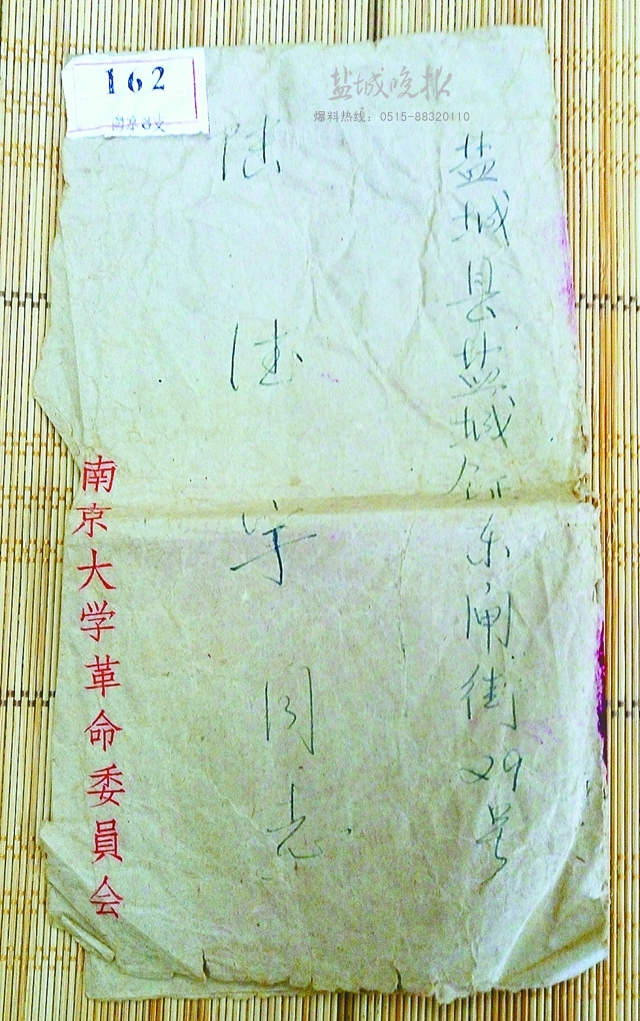 162
南京
盐城晚报
爆料热线：0515-88320110
盐城县盐城镇东闸街29号
陆德同志
南京大学革命委員会